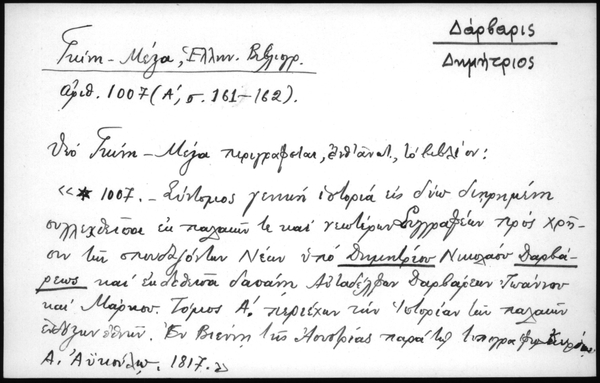 Δάρβαρις
Δημήτριος
Γκίνη - Μέξα, Ἑλλην. Βιβλιογρ.
ἀριθ. 1007 (Α΄, σ. 161-162).
Ὑπό Γκίνη - Μέξα περιγράφεται, τό βιβλίον:
«* 1007. - Σύντομος γενική ἱστορία εἰς δύω διῃρημένη
συλλεχθεῖσα ἐκ παλαιῶν τε καί νεωτέρων Συγγραφέων πρός χρῆ-
σιν τῶν σπουδαζόντων Νέων ὑπό Δημητρίου Νικολάου Δαρβά-
ρεως καί ἐκδοθεῖσα δαπάνῃ Αὐταδέλφων Δαρβάρεων Ἰωάννου
καί Μάρκου. Τόμος Α΄, περιέχων τήν Ἱστορίαν τῶν παλαιῶν
ἐθνῶν. Ἐν Βιέννῃ τῆς Αουστρίας παρά τῷ τυπογράφῳ
Α. Ἀϋκούλῳ. 1817.»